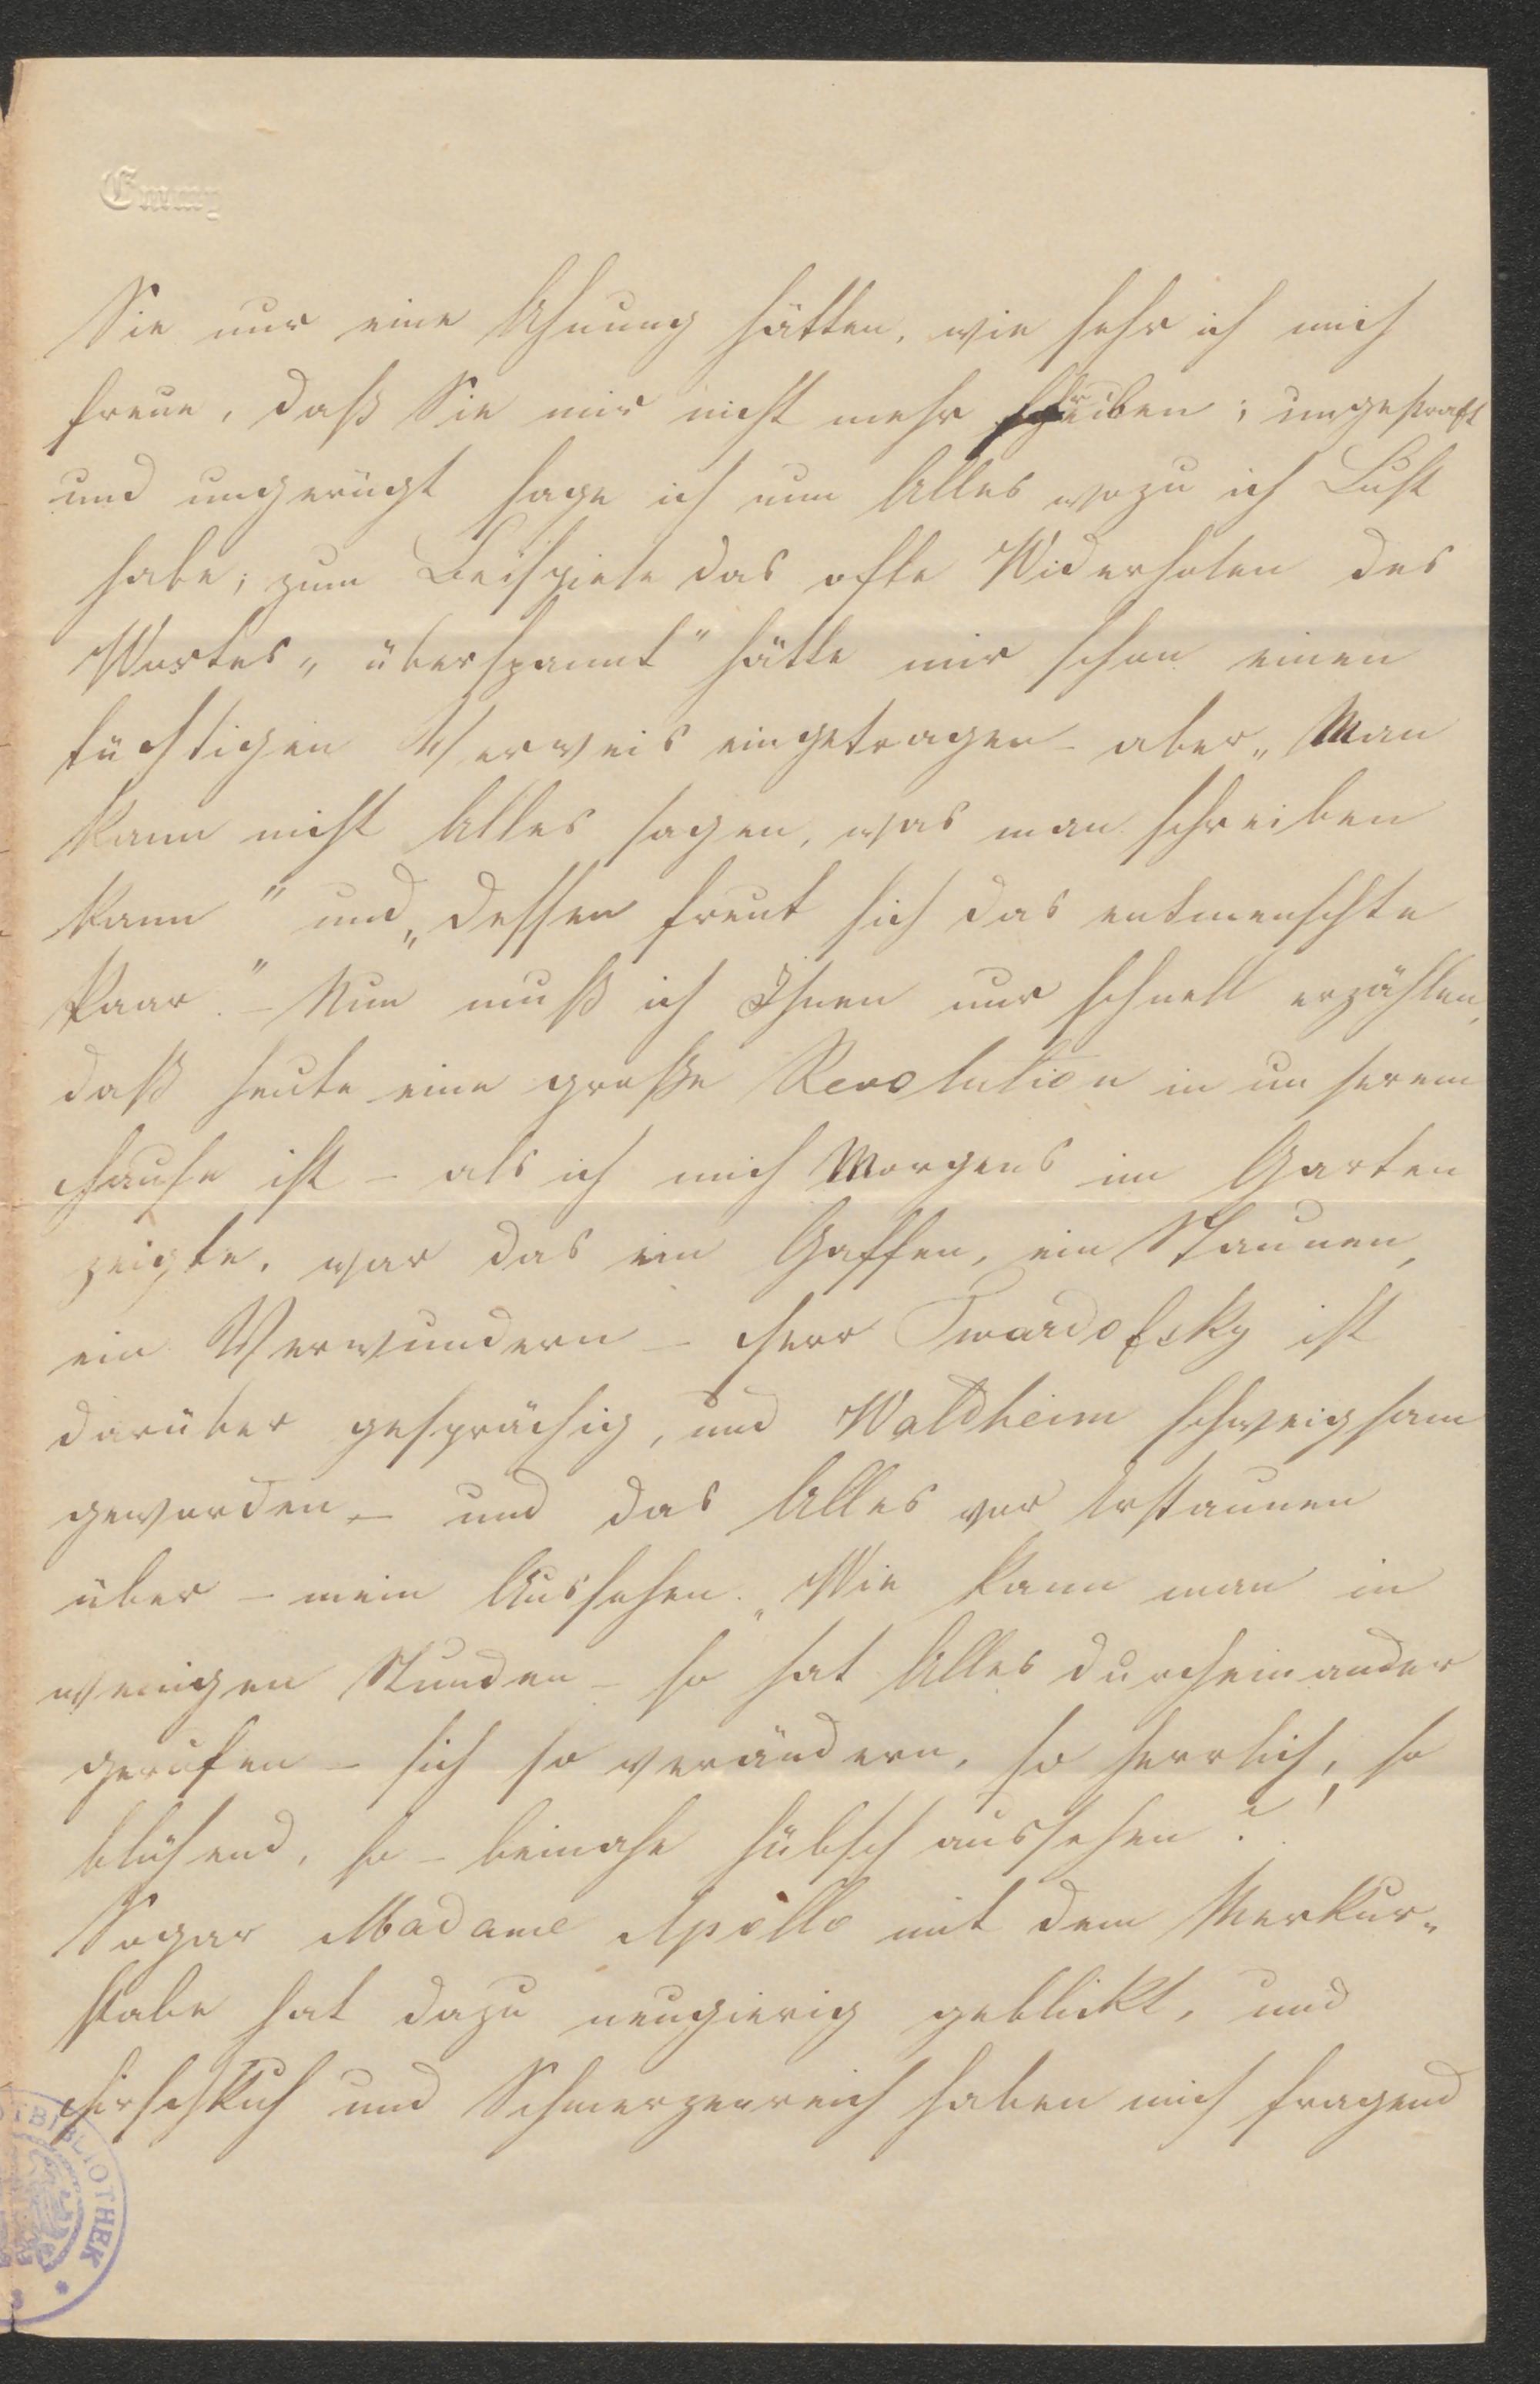 Emmy
Sie nur eine Ahnung hätten, wie sehr ich mich
freue, daß Sie mir nicht mehr schreiben; ungestraft
und ungerügt sage ich nun Alles wozu ich Lust
habe; zum Beispiele das ofte Widerholen des
Wortes „überspannt" hätte mir schon einen
tüchtigen Verweis eingetragen – aber „Man
kann nicht Alles sagen, was man schreiben
kann" und „dessen freut sich das entmenschte
Paar." – Nun muß ich Ihnen nur schnell erzählen,
daß heute eine große Revolution in unserem
Hause ist – als ich mich Morgens im Garten
zeigte, war das ein Gaffen, ein Staunen,
ein Verwundern – Herr Twardofsky ist
darüber gesprächig, und Waldheim schweigsam
geworden – und das Alles vor Erstaunen
über – mein Aussehen. „Wie kann man in
wenigen Stunden – so hat Alles durcheinander
gerufen – sich so verändern, so herrlich, so
blühend, so – beinahe hübsch aussehen?!
Sogar Madame Apollo mit dem Merkur-
stabe hat dazu neugierig geblickt, und
Hirschkuh und Schmerzenreich haben mich fragend
BIBLIOTHEK